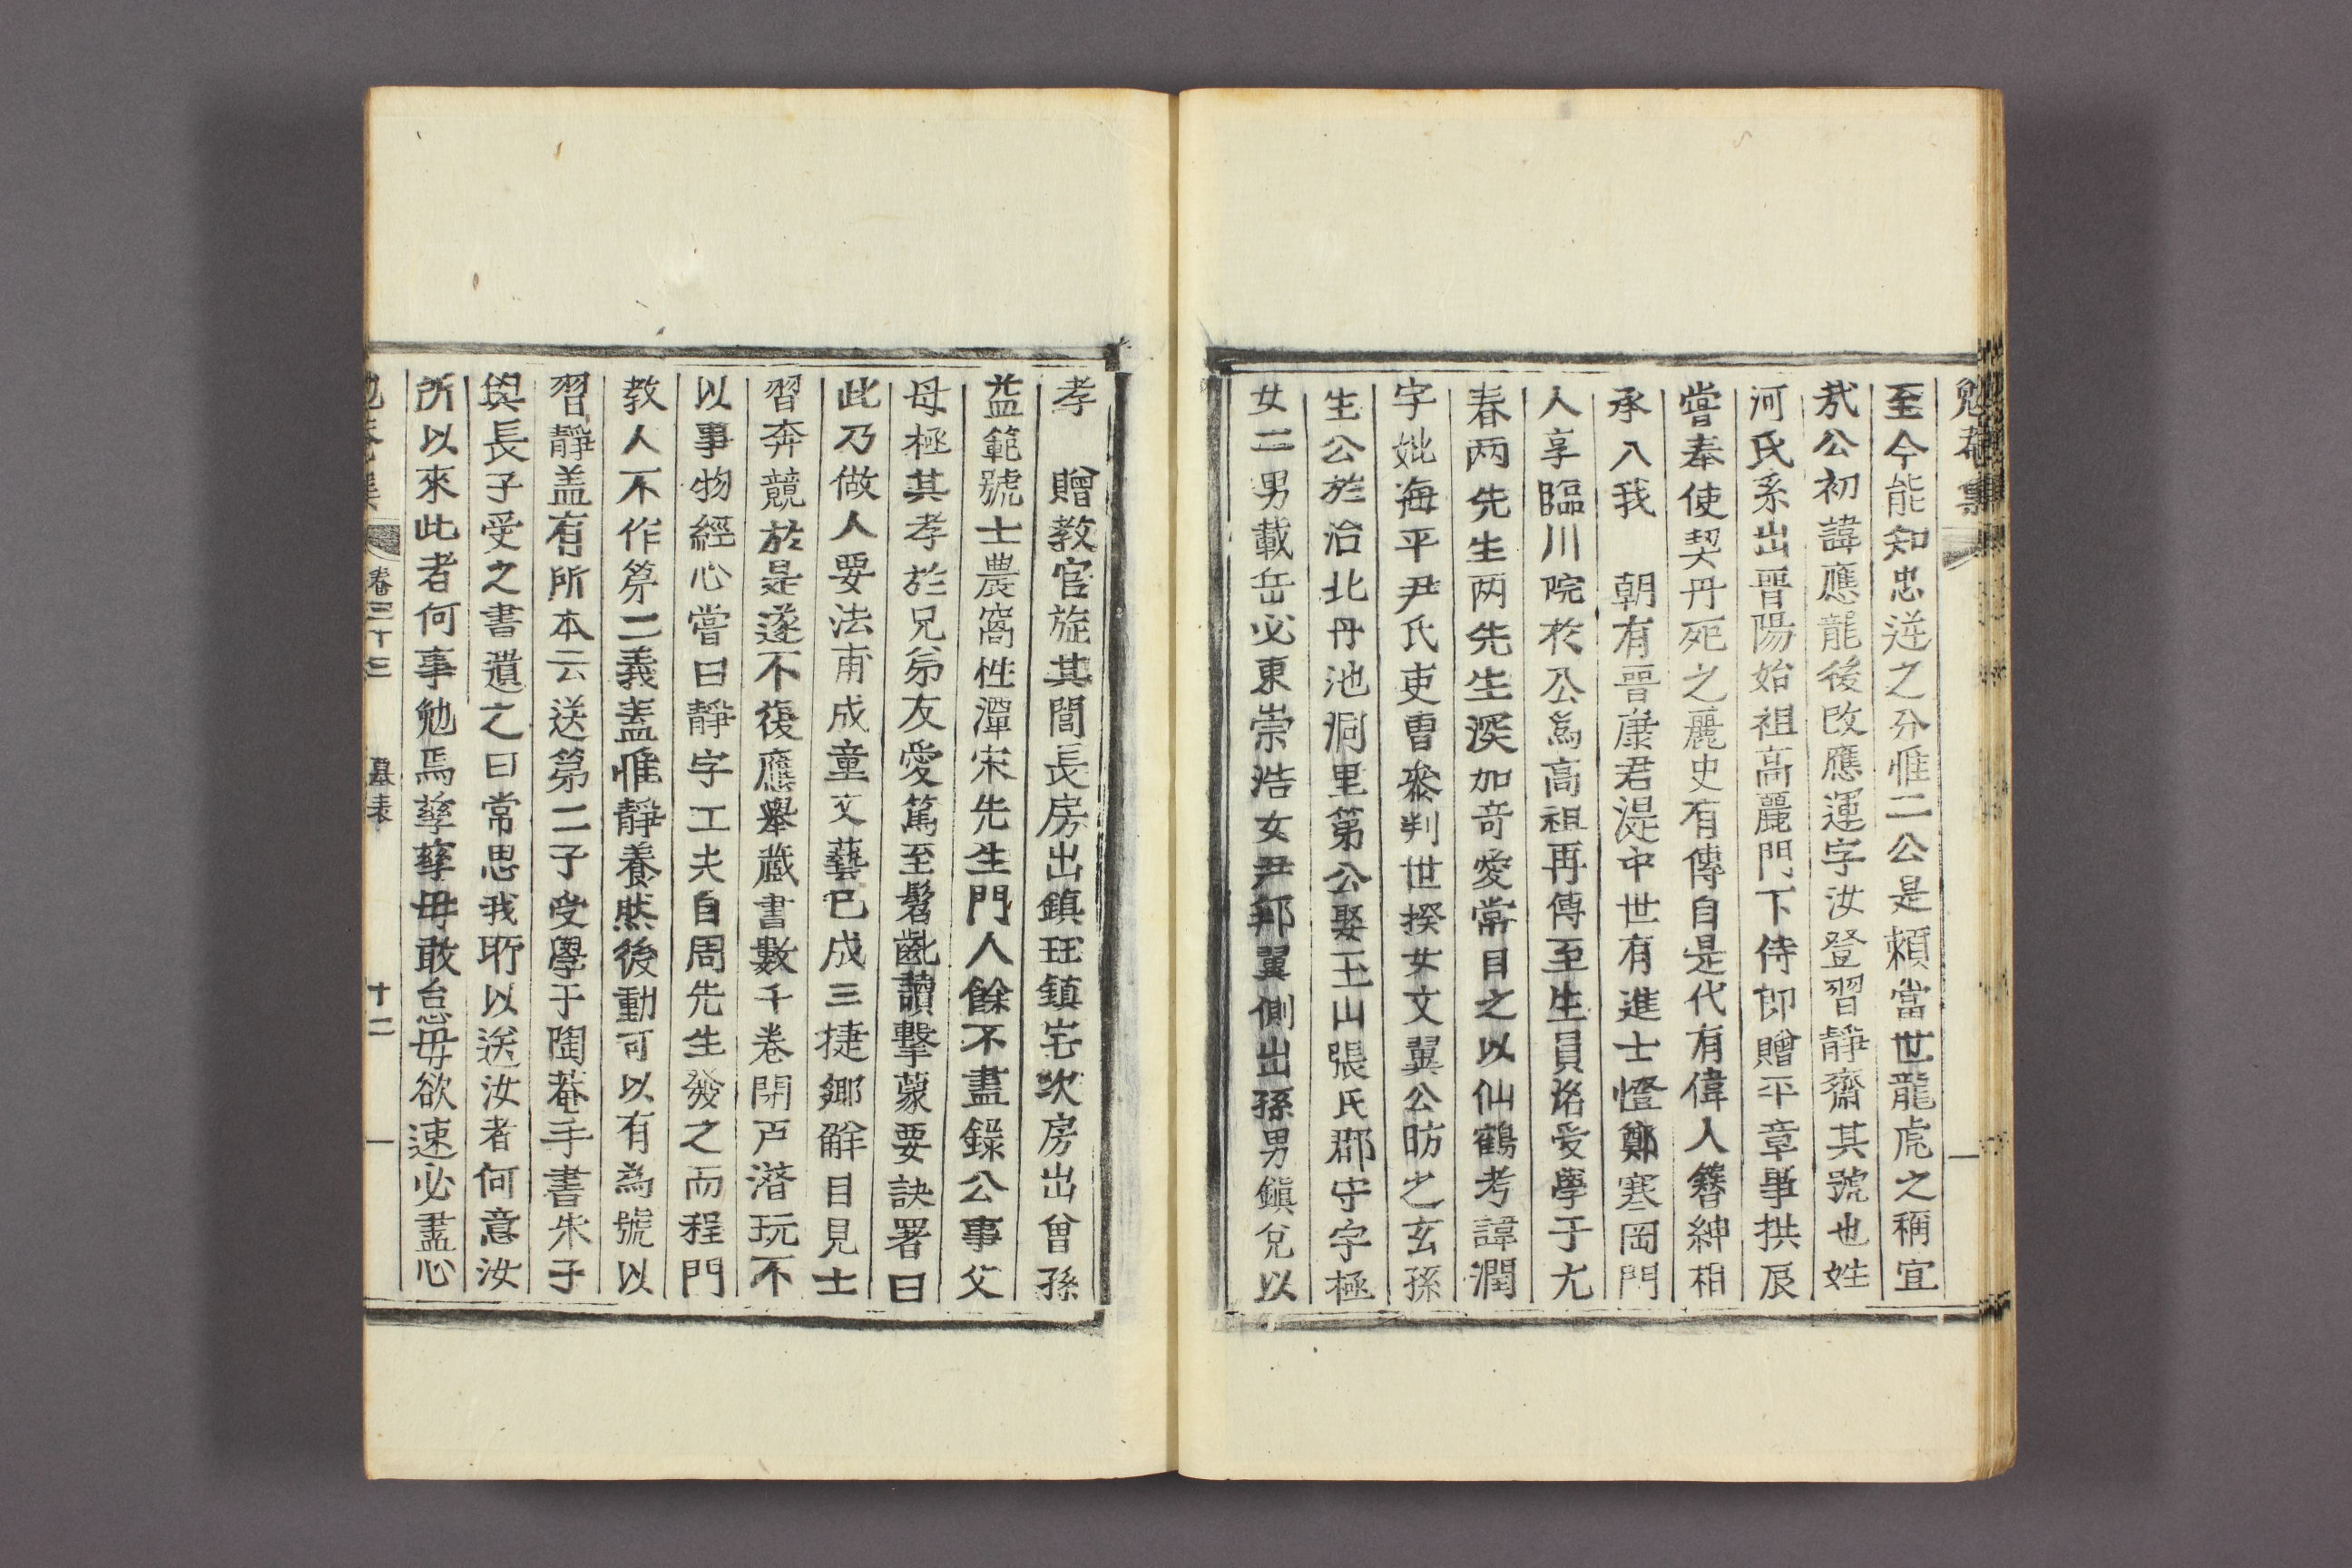 勉菴集
至今能知忠逆之分惟二公是賴當世龍虎之稱宜
㢤公初諱應龍後改應運字汝登習靜齋其號也姓
河氏系出晉陽始祖高麗門下侍郎贈平章事拱辰
嘗奉使契丹死之麗史有傳自是代有偉人簪紳相
承入我 朝有晉康君湜中世有進士憕鄭寒岡門
人享臨川院於公爲高祖再傳至生員洺受學于尤
春两先生两先生深加奇愛常目之以仙鶴考諱潤
字妣海平尹氏吏曹參判世揆女文翼公昉之玄孫
生公於治北丹池洞里第公娶玉山張氏郡守宇極
女二男載岳必東崇浩女尹邦翼側出孫男鎭兌以
孝 贈教官旋其閭長房出鎮珏鎮宅次房出曾孫
益範號士農窩性潭宋先生門人餘不盡錄公事父
母極其孝於兄弟友愛篤至髫齔讀擊蒙要訣署曰
此乃做人要法甫成童文藝已成三捷鄉解目見士
習奔競於是遂不復應擧藏書數千卷閉戶潜玩不
以事物經心嘗曰靜字工夫自周先生發之而程門
教人不作第二義盖惟靜養然後動可以有為號以
習靜盖有所本云送第二子受學于陶菴手書朱子
與長子受之書遺之曰常思我所以送汝者何意汝
所以來此者何事勉焉孶孶毋敢怠毋欲速必盡心
勉菴集 卷三十三 墓表 十二